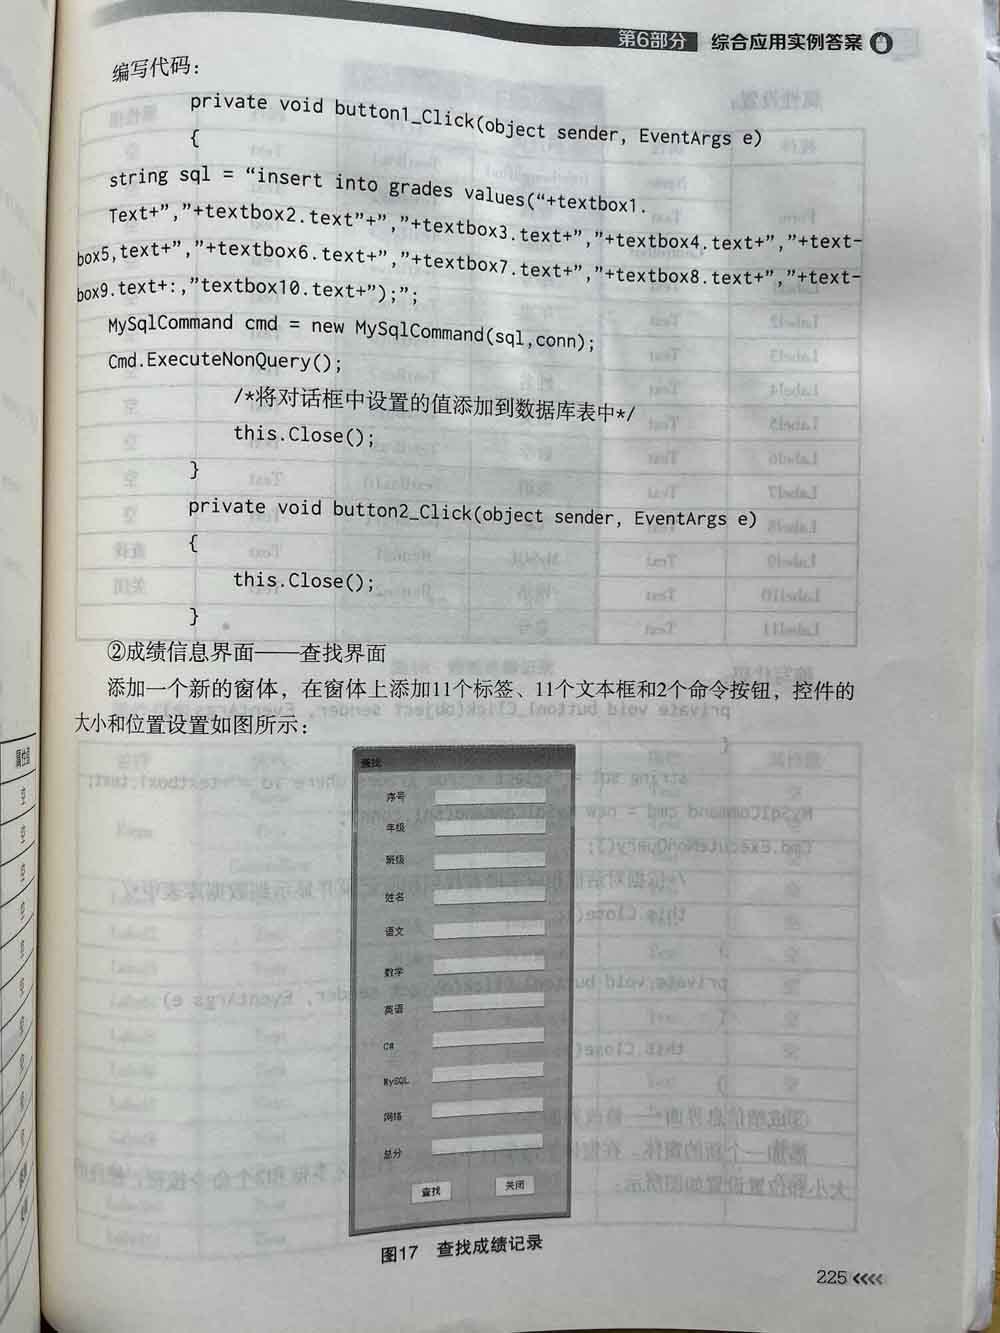 第6部分 综合应用实例答案
编写代码：
private void button1_Click(object sender, EventArgs e)
{
string sql = “insert into grades values(“+textbox1.
Text+”,”+textbox2.text”+”,”+textbox3.text+”,”+textbox4.text+”,”+text-
box5,text+”,”+textbox6.text+”,”+textbox7.text+”,”+textbox8.text+”,”+text-
box9.text+:,”textbox10.text+”);”;
MySqlCommand cmd = new MySqlCommand(sql,conn);
Cmd.ExecuteNonQuery();
/*将对话框中设置的值添加到数据库表中*/
this.Close();
}
private void button2_Click(object sender, EventArgs e)
{
this.Close();
}
②成绩信息界面——查找界面
添加一个新的窗体，在窗体上添加11个标签、11个文本框和2个命令按钮，控件的
大小和位置设置如图所示：
查找
序号
年级
班级
姓名
语文
数学
英语
C#
MySQL
网络
总分
查找 关闭
图17 查找成绩记录
225
属性值
空
空
空
空
空
空
空
空
空
空